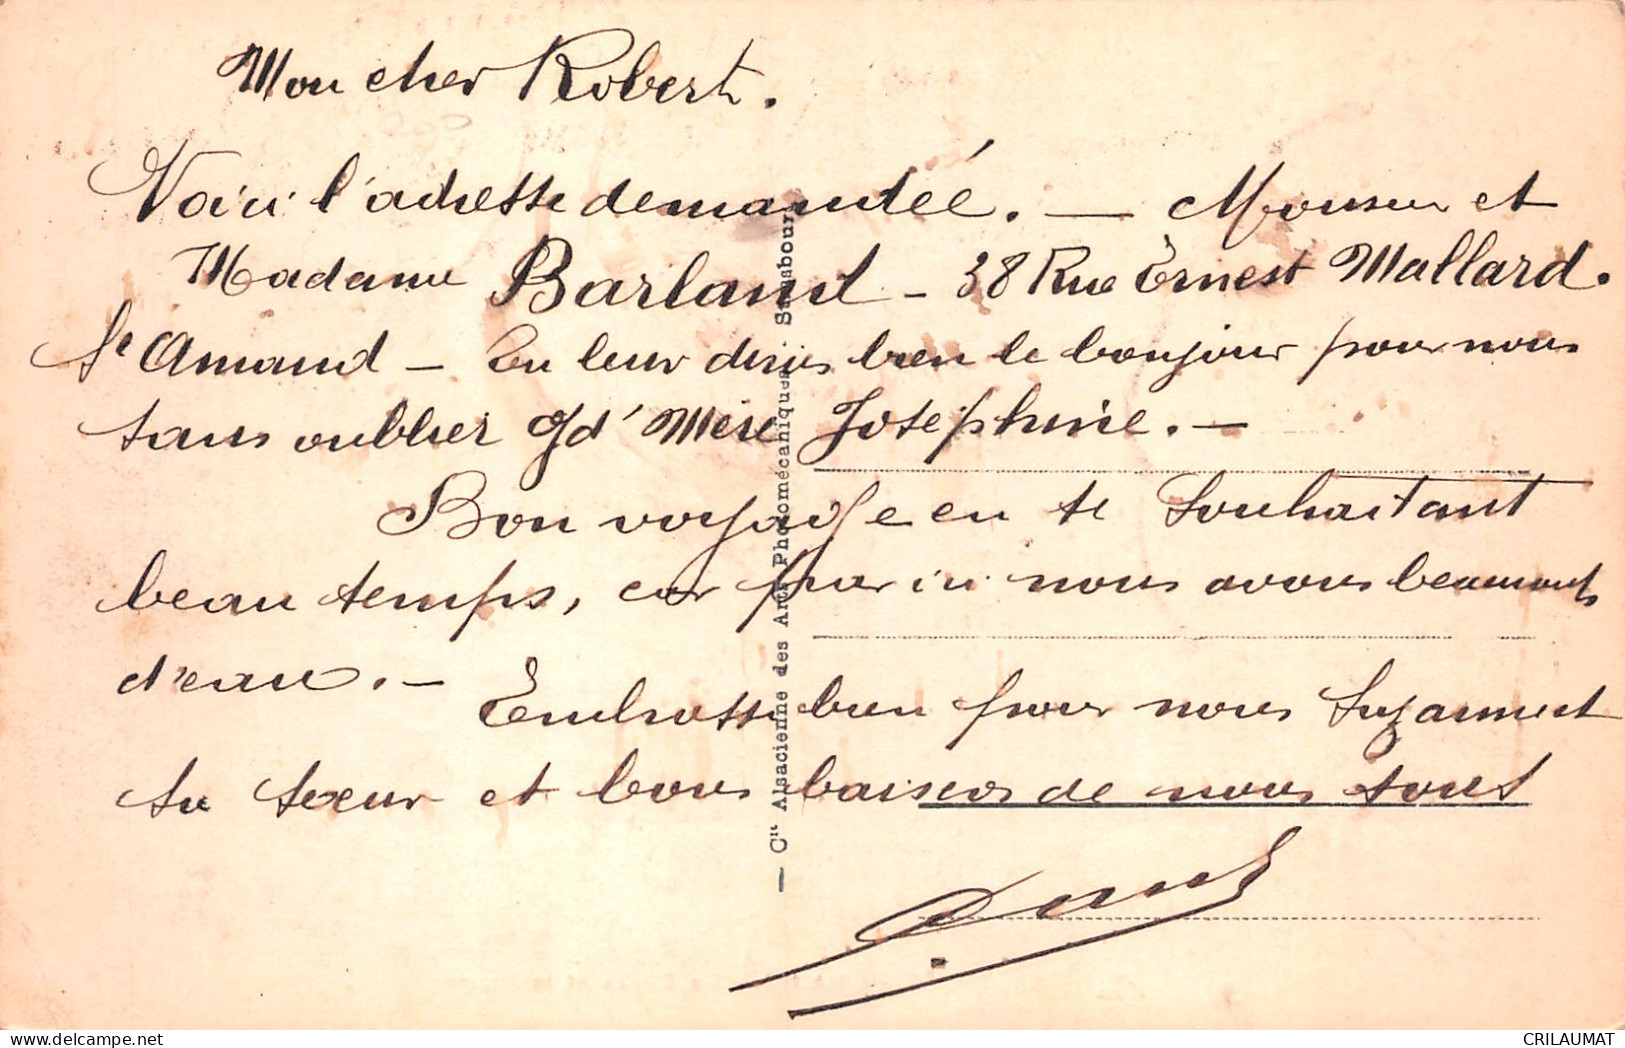 Mon cher Robert.
Voici l'adresse demandée. — Monsieur et
Madame Barland - 38 Rue Ernest Mallard.
St Amand — Tu leur diras bien le bonjour pour nous
sans oublier Gd' Mère Joséphine. —
Bon voyage en te souhaitant
beau temps, car par ici nous avons beaucoup
d'eau. — Embrasse bien pour nous Suzanne et
sa sœur et bons baisers de nous tous
— Cie Alsacienne des Arts Photomécaniques, Strasbourg
CRILAUMAT